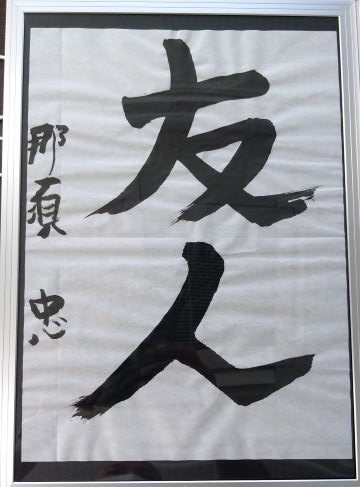 友人
那須 忠